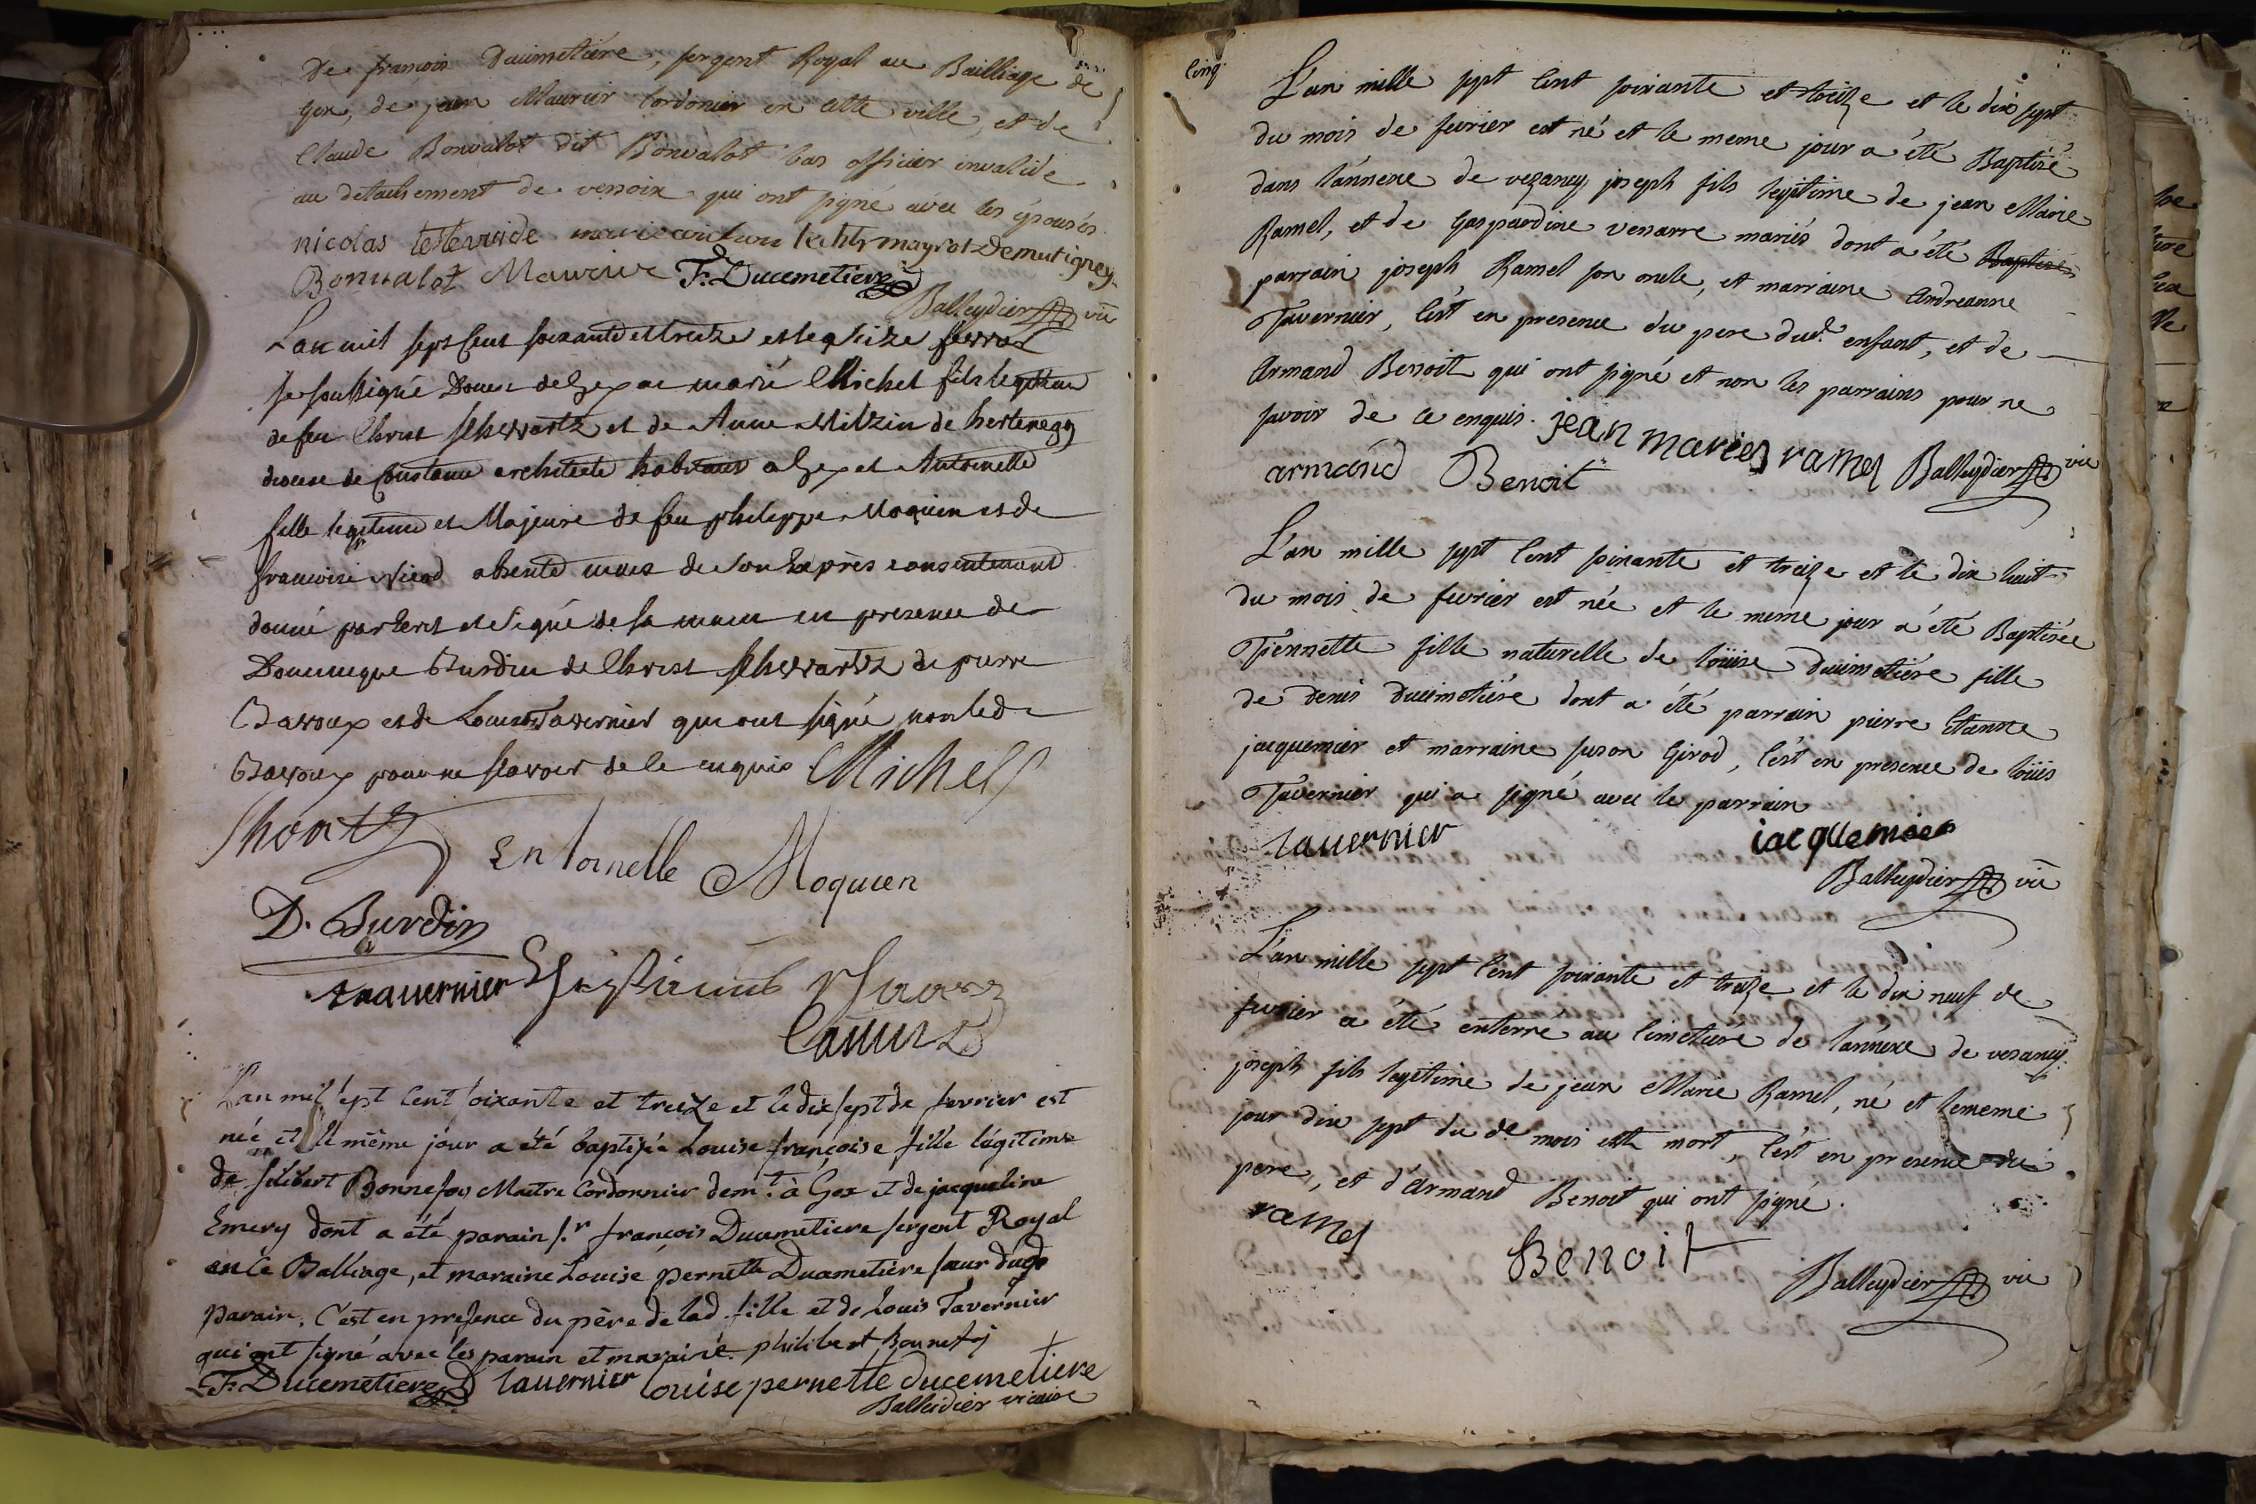 De francois Ducimetiére, sergent Royal au Bailliage de
Gex, de jean Maurier Cordonier en cette ville, et de
Claude Bonvalot dit Bonvalot bas officier invalide
au detachement de versoix qui ont signé avec les épousés.
nicolas marie mayrot Demutigney
Bonvalot Maurier F. Ducemetiere
Balleydier vic
Lan mil sept Cent soixante et treize et le seize fevrier
je soussigné Doyen de Gex ai marié Michel fils legitime
de feu Christ Schwartz et de Anne Milzin de
diocese de Constance architecte habitant a Gex et Antoinette
fille legitime et Majeure de feu philippe Moquin et de
francoise Nicod absente mais de son Exprès consentement
donné par Ecrit et signé de sa main en presence de
Dominique Burdin de Christ Schwartz de pierre
Bavoux et de Louis Tavernier qui ont signé non led.
Bavoux pour ne scavoir de ce enquis Michel
Shvartz
Entoinette Moquien
D. Burdin
Tauernier
Castin
Lan mil sept Cent soixante et treize et le dix sept de fevrier est
née et le même jour a été baptisée Louise françoise fille légitime
de filibert Bonnefoy Maitre Cordonnier dem.t à Gex et de jacqueline
Emery dont a été parain s.r françois Ducimetiere sergent Royal
en ce Balliage, et maraine Louise pernette Ducimetiére sœur dud.
parain. C'est en presence du père de lad. fille et de Louis Tavernier
qui ont signé avec les parain et maraine. philibert Bonnefoj
F. Ducemetiere tauernier louise pernette ducemetiere
Balleidier vicaire
Cinq.
L'an mille sept Cent soixante et treize et le dix sept
du mois de fevrier est né et le meme jour a été Baptisé
dans l'annexe de vezancy joseph fils legitime de jean Marie
Ramel, et de Gaspardine venarre mariés dont a été Baptisé
parrain joseph Ramel son oncle, et marraine Andreanne
Tavernier, C'est en presence du pere dud.t enfant, et de
Armand Benoit qui ont signé et non les parrains pour ne
savoir de ce enquis. jean mariez ramel
armand Benoit Balleydier vic
L'an mille sept Cent soixante et treize et le dix huit
du mois de fevrier est née et le meme jour a été Baptisée
Tiennette fille naturelle de loüise Ducimetiére fille
de Denis Ducimetiére dont a été parrain pierre
jacquemier et marraine suson Girod, C'est en presence de loüis
Tavernier qui a signé avec le parrain
tauernier iacquemier
Balleydier vic
L'an mille sept Cent soixante et treize et le dix neuf de
fevrier a été enterré au Cimetiére de l'annexe de vesancy.
joseph fils legitime de jean Marie Ramel, né et le meme
jour dix sept du d.t mois est mort, C'est en presence du
pere, et d'Armand Benoit qui ont signé.
ramel
Benoit
Balleydier vic